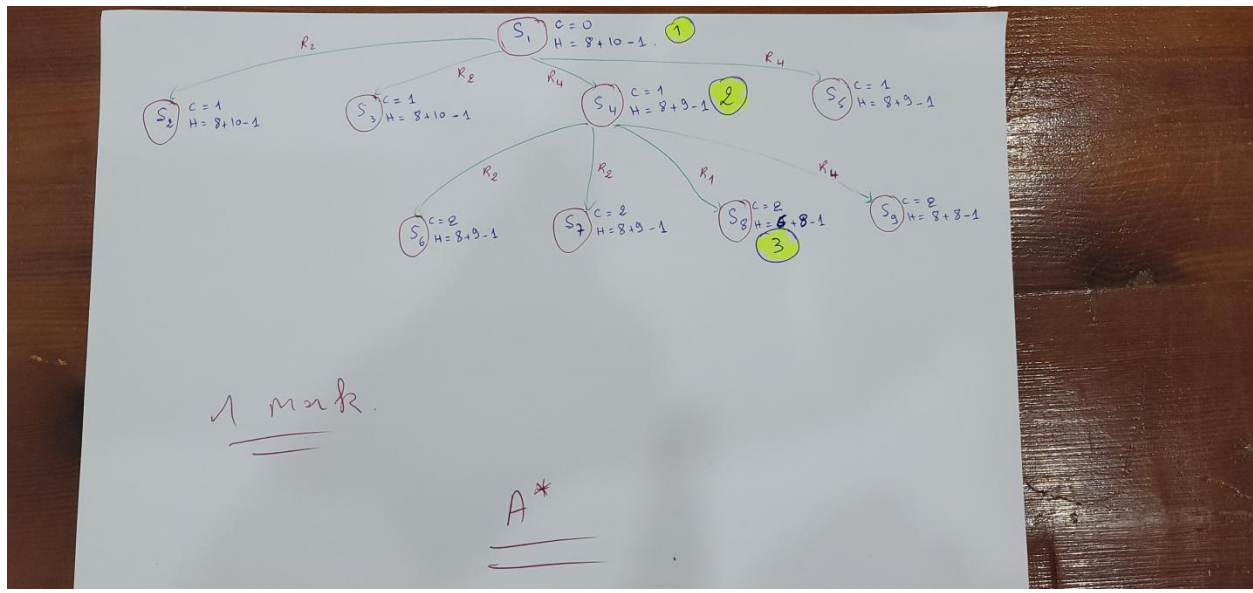 S1 C = 0
H = 8+10-1.
1
R2
R2
R4
R4
S2 C = 1
H = 8+10-1
S3 C = 1
H = 8+10-1
S4 C = 1
H = 8+9-1
2
S5 C = 1
H = 8+9-1
R2
R2
R1
R4
S6 C = 2
H = 8+9-1
S7 C = 2
H = 8+9-1
S8 C = 2
H = 6+8-1
3
S9 C = 2
H = 8+8-1
1 mark.
A*